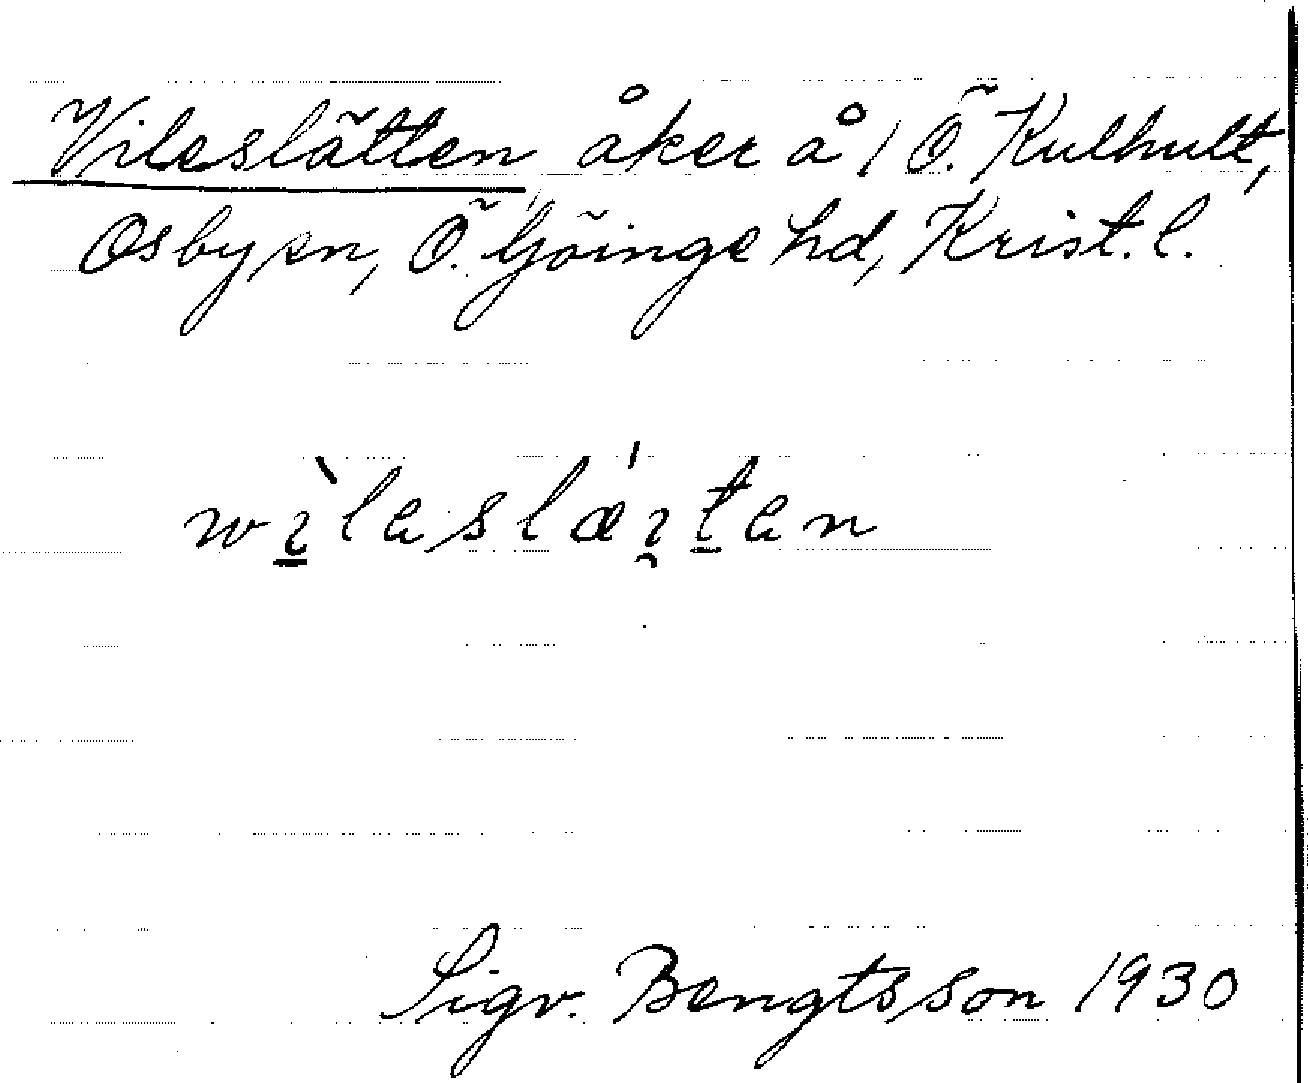 Vileslätten, åker å 1 Ö. Kulhult,
Osby sn, Ö. Göinge hd, Krist. l.
Sigv. Bengtsson 1930